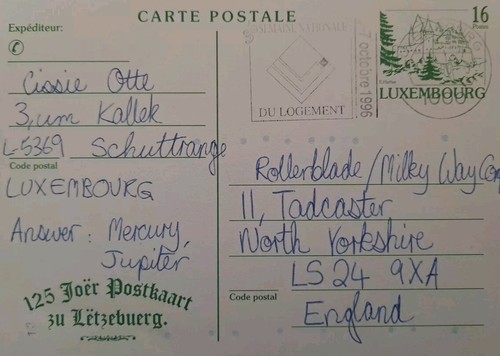 CARTE POSTALE
Expéditeur:
Cissie Otte
3, um Kallek
L-5369 Schuttrange
Code postal
LUXEMBOURG
Answer: Mercury,
Jupiter
125 Joër Postkaart
zu Lëtzebuerg.
SEMAINE NATIONALE
DU LOGEMENT
octobre 1996
16
Postes
LUXEMBOURG
Rollerblade/Milky Way Com
11, Tadcaster
North Yorkshire
LS24 9XA
Code postal
England